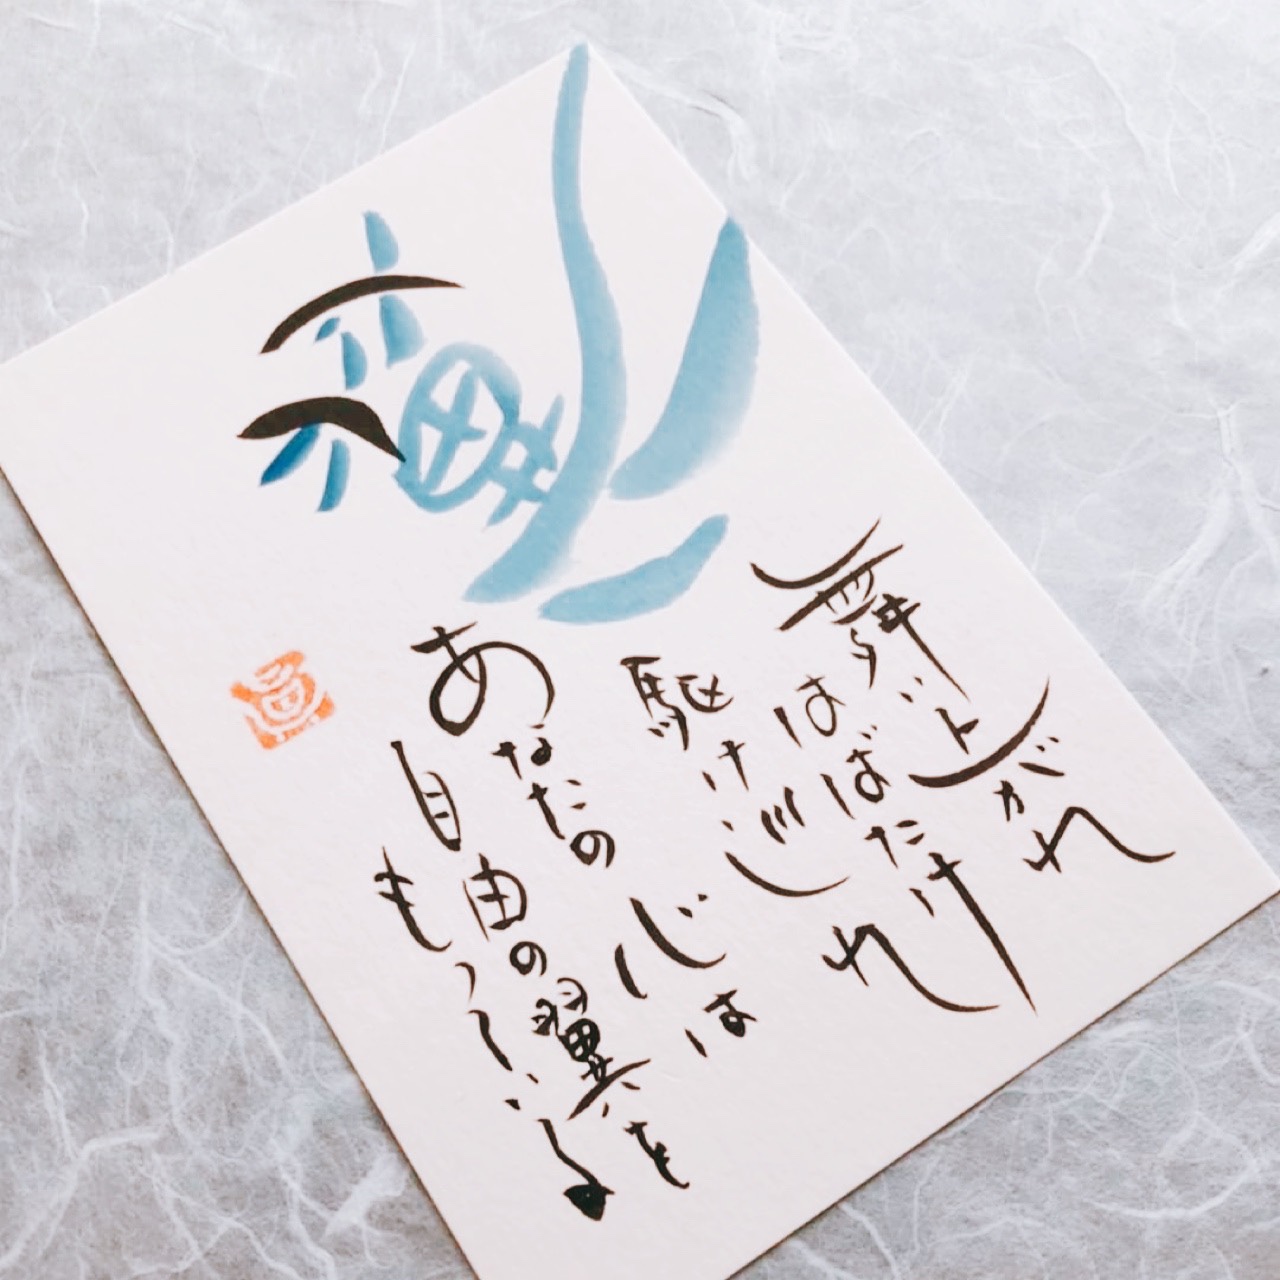 翼
舞い上がれ
はばたけ
駆け巡れ
あなたの心は
自由の翼を
もっている